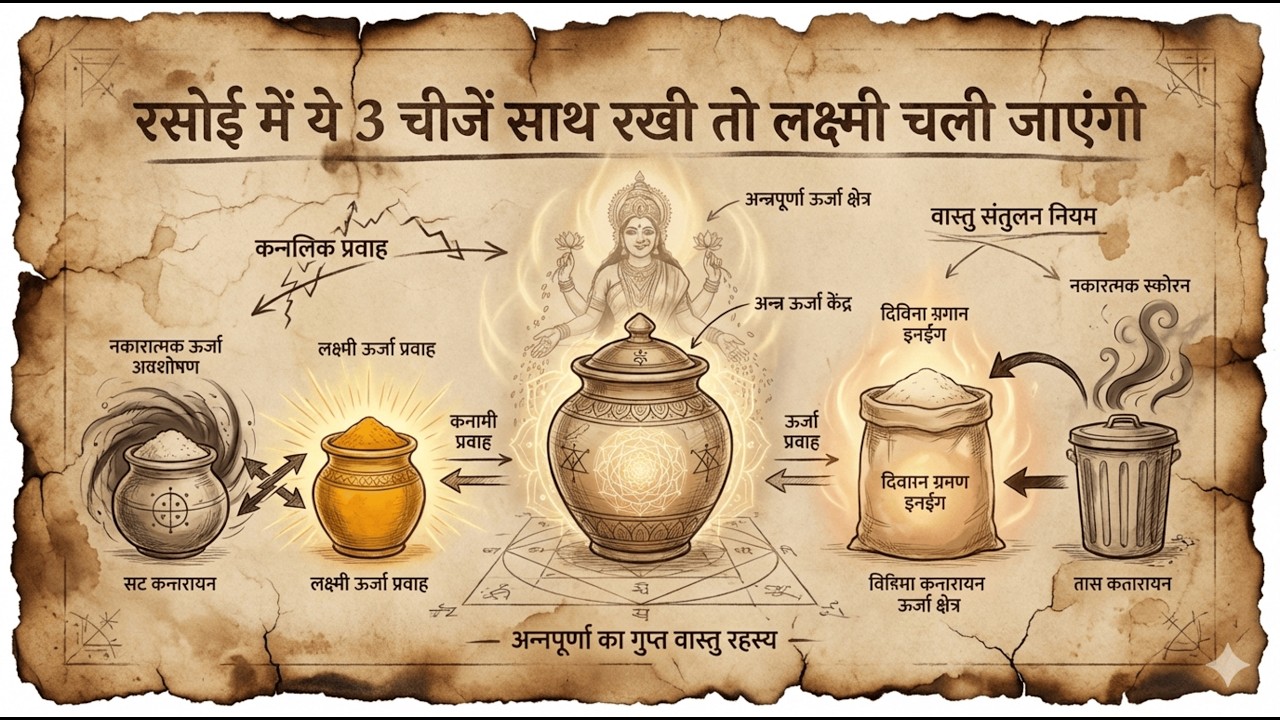 रसोई में ये 3 चीजें साथ रखी तो लक्ष्मी चली जाएंगी
अन्नपूर्णा ऊर्जा क्षेत्र
वास्तु संतुलन नियम
कनलिक प्रवाह
नकारत्मक स्कोरन
अन्न ऊर्जा केंद्र
दिविना ग्रगान
इनईंग
नकारात्मक ऊर्जा
अवशोषण
लक्ष्मी ऊर्जा प्रवाह
कनामी
प्रवाह
ऊर्जा
प्रवाह
दिवानन ग्रमण
इनईंग
सट कनारायन
लक्ष्मी ऊर्जा प्रवाह
विडिमा कनारायन
ऊर्जा क्षेत्र
तास कतारायन
अन्नपूर्णा का गुप्त वास्तु रहस्य